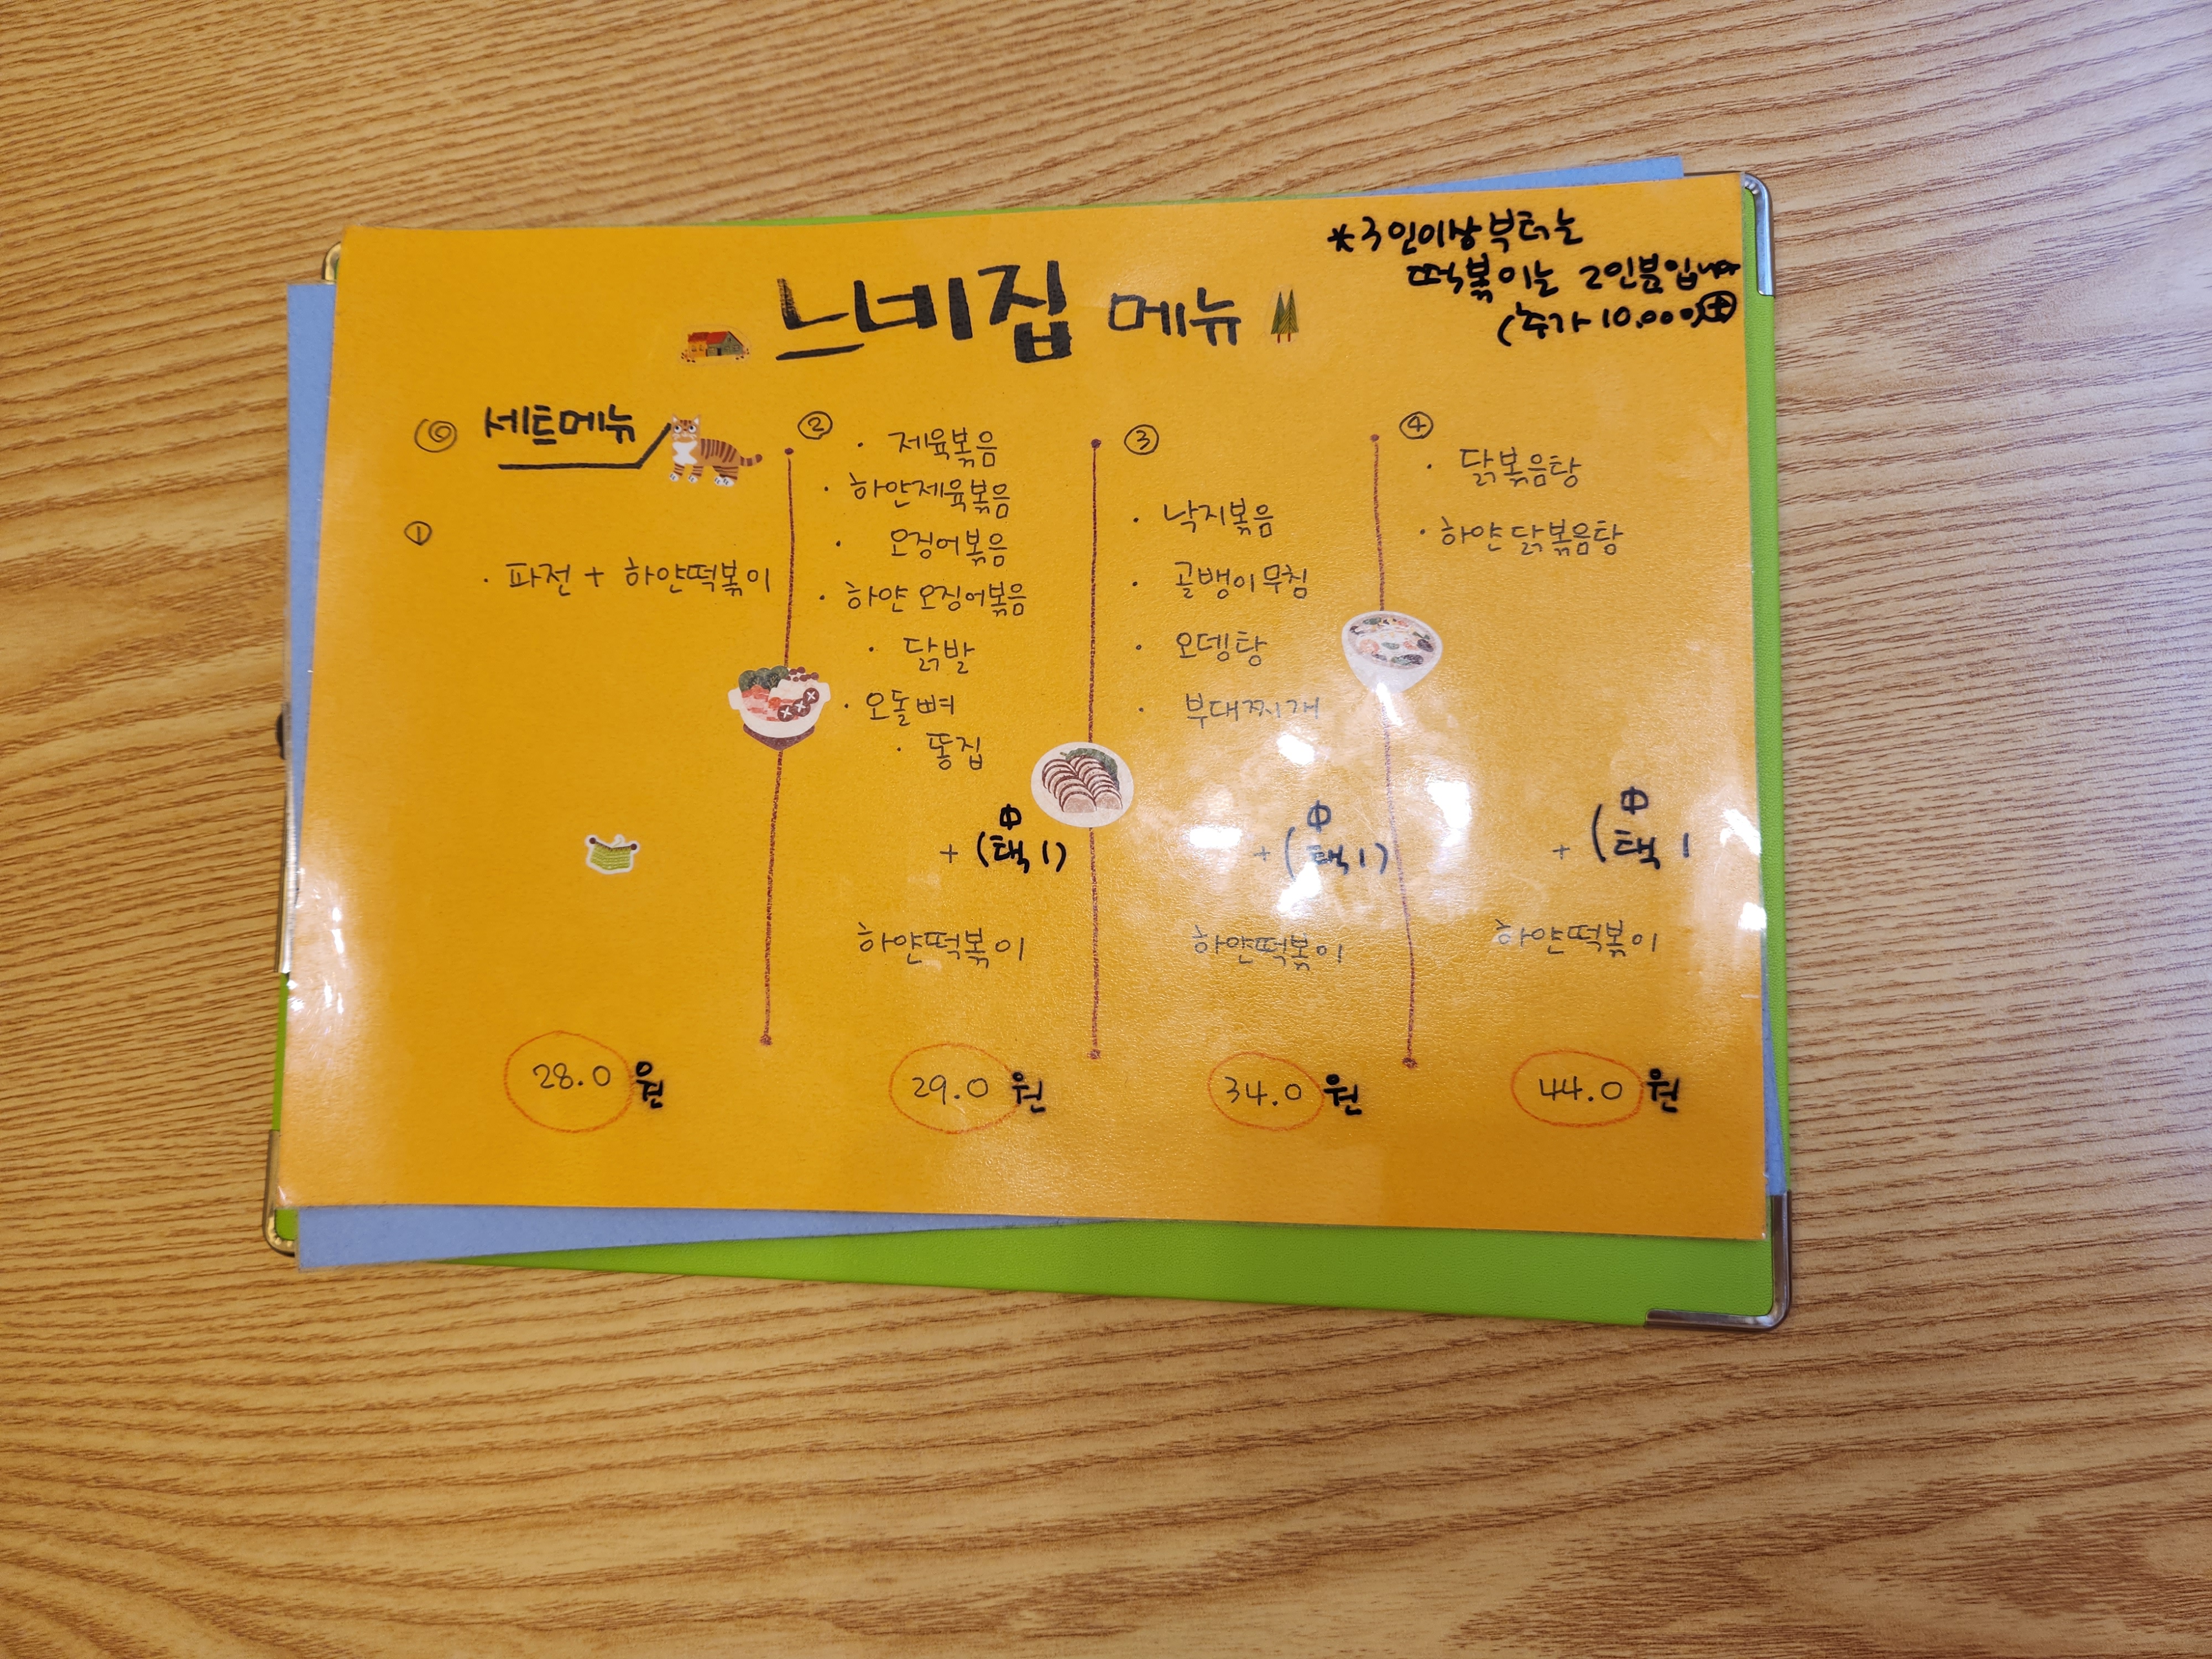 *3인이상부터는
떡볶이는 2인분입니다
(추가 10,000)+
느네집 메뉴
세트메뉴
①
· 파전 + 하얀떡볶이
28.0원
②
· 제육볶음
· 하얀제육볶음
· 오징어볶음
· 하얀오징어볶음
· 닭발
· 오돌뼈
· 똥집
中
+ (택1)
하얀떡볶이
29.0원
③
· 낙지볶음
· 골뱅이무침
· 오뎅탕
· 부대찌개
中
+ (택1)
하얀떡볶이
34.0원
④
· 닭볶음탕
· 하얀닭볶음탕
中
+ (택1
하얀떡볶이
44.0원